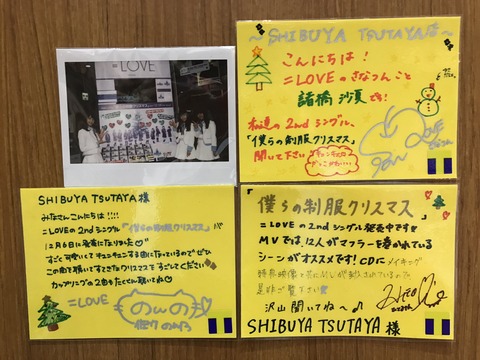 =LOVE
~SHIBUYA TSUTAYA店~
こんにちは!
=LOVEのさなつんこと
諸橋沙夏です!
私達の2ndシングル、
「僕らの制服クリスマス」
聞いて下さい
=LOVE
SHIBUYA TSUTAYA 様
みなさんこんにちは!!!!
=LOVEの2ndシングル「僕らの制服クリスマス」が
12月6日に発売になりました
すごく可愛くてキュンキュンする曲になっているのでぜひ
この曲を聴いてすてきなクリスマスをすごしてください
カップリングの2曲もたくさん聴いてね
=LOVE
「僕らの制服クリスマス」
=LOVEの2ndシングル発売中です!!
MVでは、12人がマフラーを巻かれている
シーンがオススメです!CDにメイキング
特典映像と共にMVが収録されているので
是非ご覧下さい
沢山聞いてね～♪
SHIBUYA TSUTAYA 様